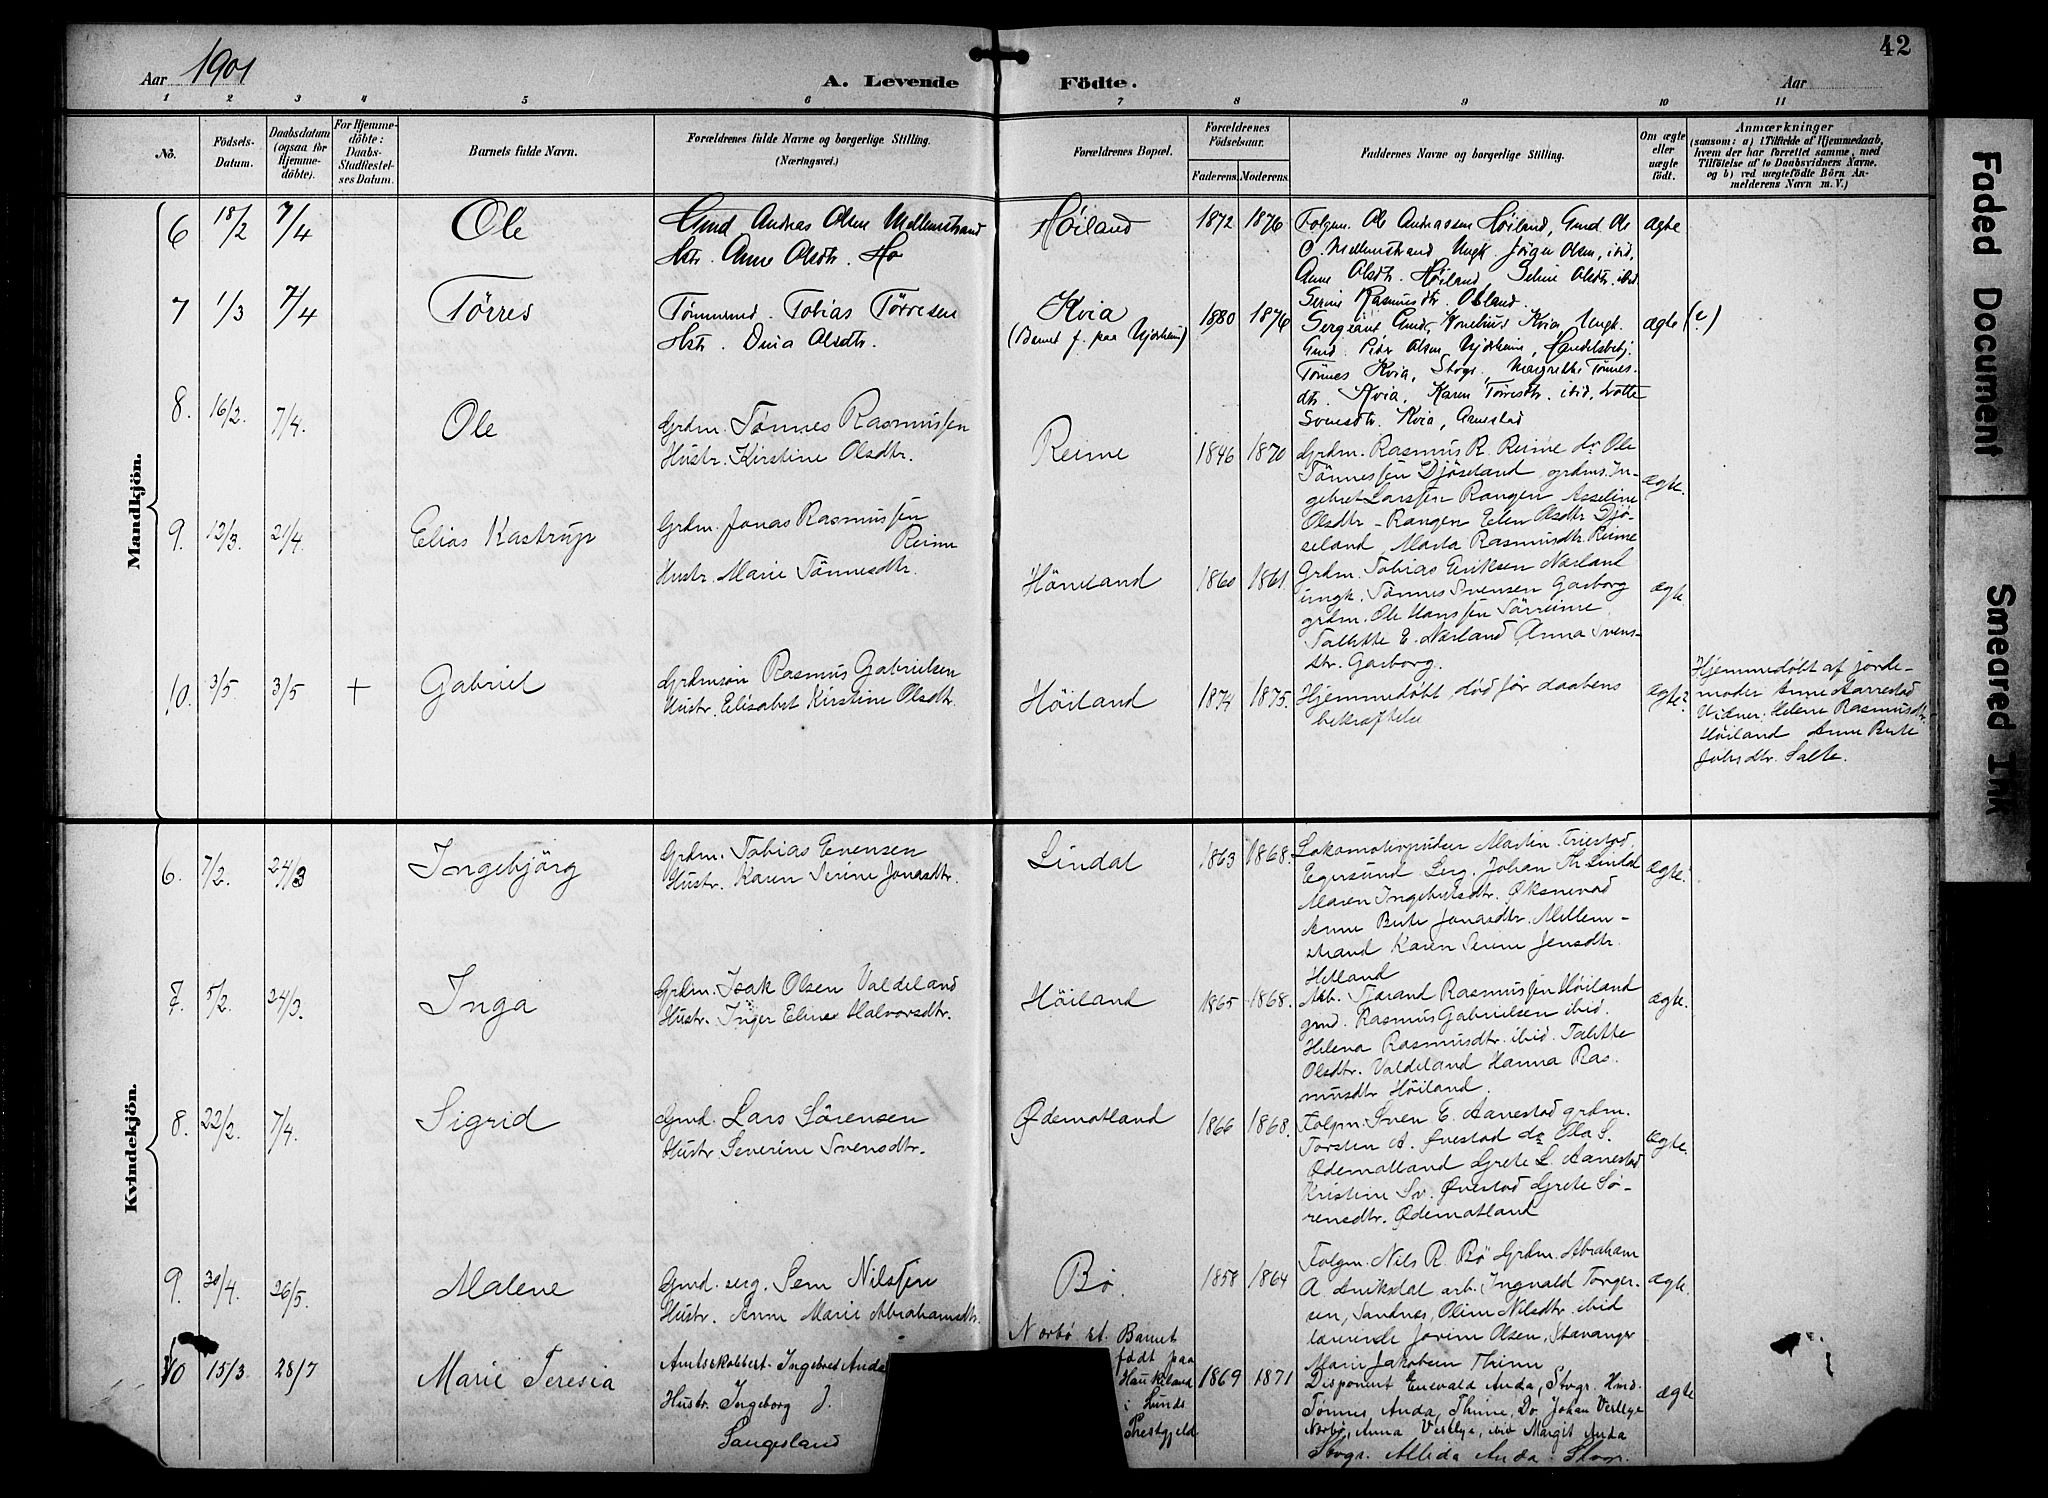 Aar 1901
A. Levende
Födte.
Aar
42
1 2 3 4 5 6 7 8 9 10 11
No.
Födsels-
Datum.
Daabsdatum
(ogsaa for
Hjemme-
döbte).
For Hjemme-
döbte:
Daabs-
Stadfæstel-
ses Datum.
Barnets fulde Navn.
Forældrenes fulde Navne og borgerlige Stilling.
(Næringsvei.)
Forældrenes Bopæl.
Forældrenes
Födselsaar.
Faderens. Moderens.
Faddernes Navne og borgerlige Stilling.
Om ægte
eller
uægte
födt.
Anmærkninger
(saasom: a) i Tilfælde af Hjemmedaab,
hvem der har forrettet samme, med
Tilföielse af to Daabsvidners Navne.
og b) ved uægtefödte Börn An-
melderens Navn m. V.)
Mandkjön.
6 18/2 7/4
Ole
Gmd Andreas Olsen Mellemstrand
Hstr. Anne Olsdtr. Ho
Höiland
1872 1876
Folgm. Ole Andreassen Höiland, Gmd Ole
C. Mellemstrand Ungk. Jörgen Olsen, ibid,
Anne Olsdtr. Höiland Seline Olsdtr. ibid
Serine Rasmusdtr. Obland.
ægte
7 1/3 7/4
Törres
Tömmermd. Tobias Törresen
Hstr. Dina Olsdtr.
Kvia
(Barnet f. paa Njærheim)
1880 1876
Sergeant Gmd, Kornelius Kvia, Ungk.
Gmd. Peder Olsen Njærheim, Handelsbetj.
Tönnes Kvia, Stvgr., Margrethe Tönnes-
dtr. Kvia, Karen Törresdtr. ibid,
Svensdtr. Kvia, Aanestad
ægte
8. 16/2. 7/4.
Ole
Grdm. Tönnes Rasmussen
Hustr. Kirstine Olsdtr.
Reime
1846 1870
Grdm. Rasmus R. Reime do Ole
Tönnessen Djöseland grdms. In-
gebret Larssen Rangen Asseline
Olsdtr - Rangen Elen Olsdtr Djö-
seland, Marta Rasmusdtr Reime
ægte.
9. 12/3. 21/4.
Elias Kastrup
Grdm. Jonas Rasmussen
Reime
Hustr. Marie Tönnesdtr.
Höneland
1860 1861.
Grdm. Tobias Eriksen Nærland
ungk. Tönnes Svensen Garborg
grdm. Ole Hanssen Sörreime.
Talette E. Nærland Anna Svens-
dtr. Garborg.
ægte
10. 3/5 3/5 +
Gabriel
Grdmsön Rasmus Gabrielsen
Hustr. Elisabet Kirstine Olsdtr.
Höiland
1874 1875.
Hjemmedöbt död för daabens
bekræftelse
ægte?
Hjemmedöbt af jorde-
moder Anne Aarrestad
Vidner. Helene Rasmusdtr.
Höiland Anne Berte
Jonsdtr. Salte.
Kvindekjön.
6. 7/2. 24/3
Ingebjörg
Grdm. Tobias Evensen
Hustr. Karen Serine Jonasdtr.
Lindal
1863 1868.
Lokomotivpudser Martin Friestad
Egersund Serg. Johan Th Lindal
Maren Ingebretsdtr. Öksnevad
Anne Berte Jonasdtr. Mellem-
strand Karen Serine Jensdtr.
Hetland
ægte.
7. 5/2. 24/3.
Inga
Grdm. Isak Olsen Valdeland
Hustr. Inger Eline Halvorsdtr.
Höiland
1865 1868.
Arb. Tjærand Rasmussen Höiland
grmd. Rasmus Gabrielsen ibid.
Helena Rasmusdtr. ibid. Talette
Olsdtr. Valdeland Hanna Ras-
musdtr Höiland.
ægte.
8. 22/2. 7/4.
Sigrid
Gmd. Lars Sörensen
Hustr. Severine Svensdtr.
Ödemotland
1866 1868.
Folgm. Sven E. Aanestad grdm.
Torsten A. Övestad do Ola S.
Ödemotland Grete L. Aanestad
Kristine Sv. Övestad Grete Sö-
rensdtr. Ödemotland
ægte.
9. 30/4. 26/5.
Malene
Gmd. serg. Sem Nilssen
Hustr. Anne Marie Abrahamsdtr.
Bö.
1858 1864
Folgm. Nils R. Bö Grdm. Abraham
A. arb. Ingvald Torger-
sen, Sandnes, Oline Nilsdtr. ibid
lærerinde Jorine Olsen, Stavanger
ægte.
10 15/3. 28/7
Marie Teresia
Amtsskolbest. Ingebret Anda
Hustr. Ingeborg J.
Sangesland
Norbö st. Barnet
födt paa
Haukeland
i Lunds
Prestgjeld.
1869 1871
Marie Jakobsen Thime
Disponent Enevald Anda, Stvgr. Hmd.
Tönnes Anda, Thime, Do. Johan Vestlye
Norbö, Anna Vestlye, ibid Margit Anda
Stvgr. Allida Anda. Stvgr.
ægte
Faded Document
Smeared Ink